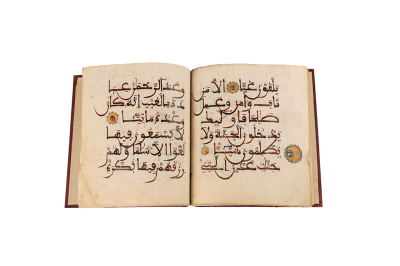 يلقون غيا الا من
تاب وامن وعمل
صلحا فاوليك
يدخلون الجنة ولا
يظلمون شيا
جنت عدن التي
وعد الرحمن عبا
ده بالغيب انه كان
وعده ماتيا
لا يسمعون فيها
لغوا الا سلما ولهم
رزقهم فيها بكرة